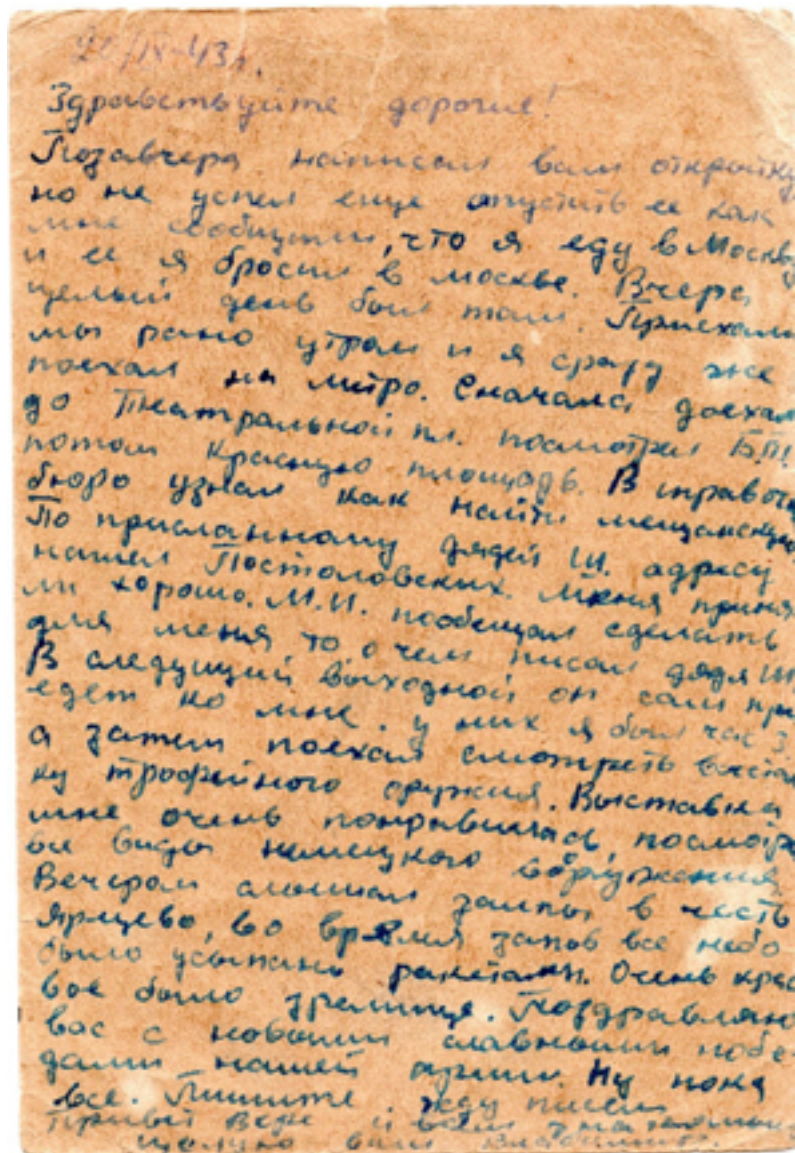 20/IX-43г.
Здравствуйте дорогие!
Позавчера написал вам открытку,
но не успел еще опустить ее как
мне сообщили, что я еду в Москву
и ее я бросил в Москве. Вчера
целый день был там. Приехали
мы рано утром и я сразу же
поехал на метро. Сначала доехал
до Театральной пл. посмотрел Б.Т.
потом Красную площадь. В справочн
бюро узнал как найти мещанскую
По присланному дядей Ш. адресу
нашел Постоловских. Меня приня
ли хорошо. М.И. пообещал сделать
для меня, то о чем писал дядя Ш.
В следущий выходной он сам при
едет ко мне. У них я был час
а затем поехал смотреть выстав
ку трофейного оружия. Выставка
мне очень понравилась, посмотрел
все виды немецкого вооружения
Вечером слышал залпы в честь
Ярцево, во время запов все небо
было усыпано ракетами. Очень краси
вое было зрелище. Поздравляю
вас с новыми славными побе
дами нашей армии. Ну пока
все. Пишите, жду писем
Привет Вере и всем знакомым
Целую вас Владимир.